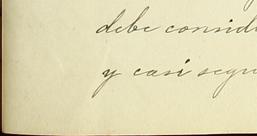 debe consid
y casi segu